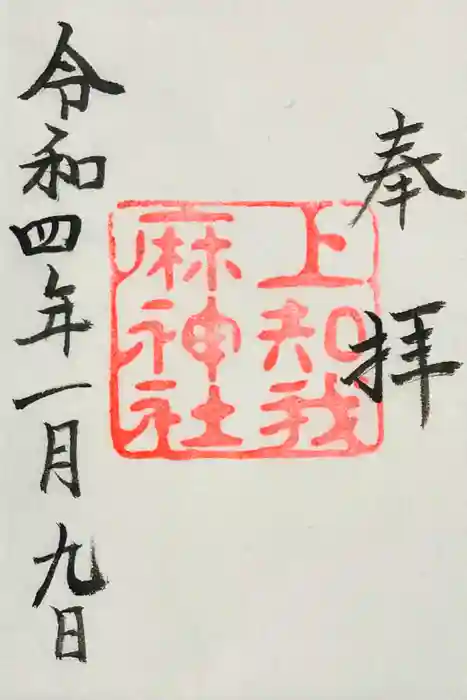 奉拝
上知我
麻神社
令和四年一月九日